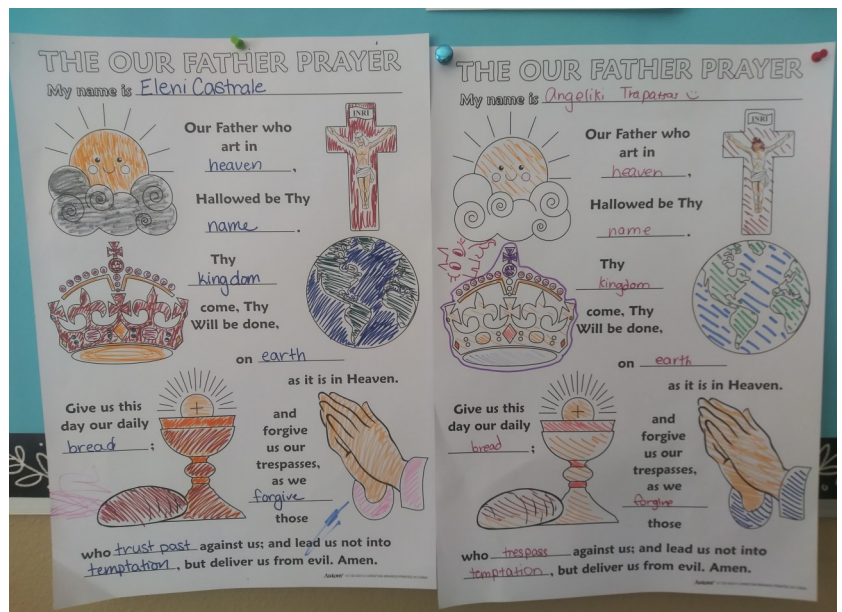 THE OUR FATHER PRAYER
My name is Eleni Castrale
Our Father who
art in
heaven,
INRI
Hallowed be Thy
name.
Thy
kingdom
come, Thy
Will be done,
on earth
as it is in Heaven.
Give us this
day our daily
bread;
and
forgive
us our
trespasses,
as we
forgive
those
who trust past against us; and lead us not into
temptation, but deliver us from evil. Amen.
THE OUR FATHER PRAYER
My name is Angeliki
Our Father who
art in
heaven,
INRI
Hallowed be Thy
name.
Thy
kingdom
come, Thy
Will be done,
on earth
as it is in Heaven.
Give us this
day our daily
bread;
and
forgive
us our
trespasses,
as we
forgive
those
who trespass against us; and lead us not into
temptation, but deliver us from evil. Amen.